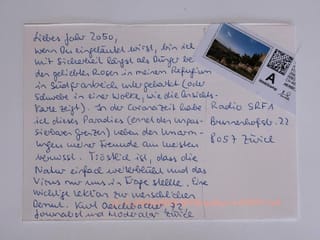 Liebes Jahr 2050,
wenn Du eingeläutet wirst, bin ich
mit Sicherheit längst als Dünger bei
den geliebten Rosen in meinem Refugium
in Südfrankreich untergebracht (oder
schwebe in einer Wolke, wie die Ansichts-
karte zeigt). In der Coronazeit habe
ich dieses Paradies (ennet der unpas-
sierbaren Grenzen) neben den Umarm-
ungen meiner Freunde am meisten
vermisst. Tröstlich ist, dass die
Natur einfach weiterblüht und das
Virus nur uns in Frage stellte. Eine
wichtige Lektion zur menschlichen
Demut. Kurt Aeschbacher, 72
Journalist und Moderator Zürich
A
Radio SRF1
Brunnenhofstr. 22
8057 Zürich